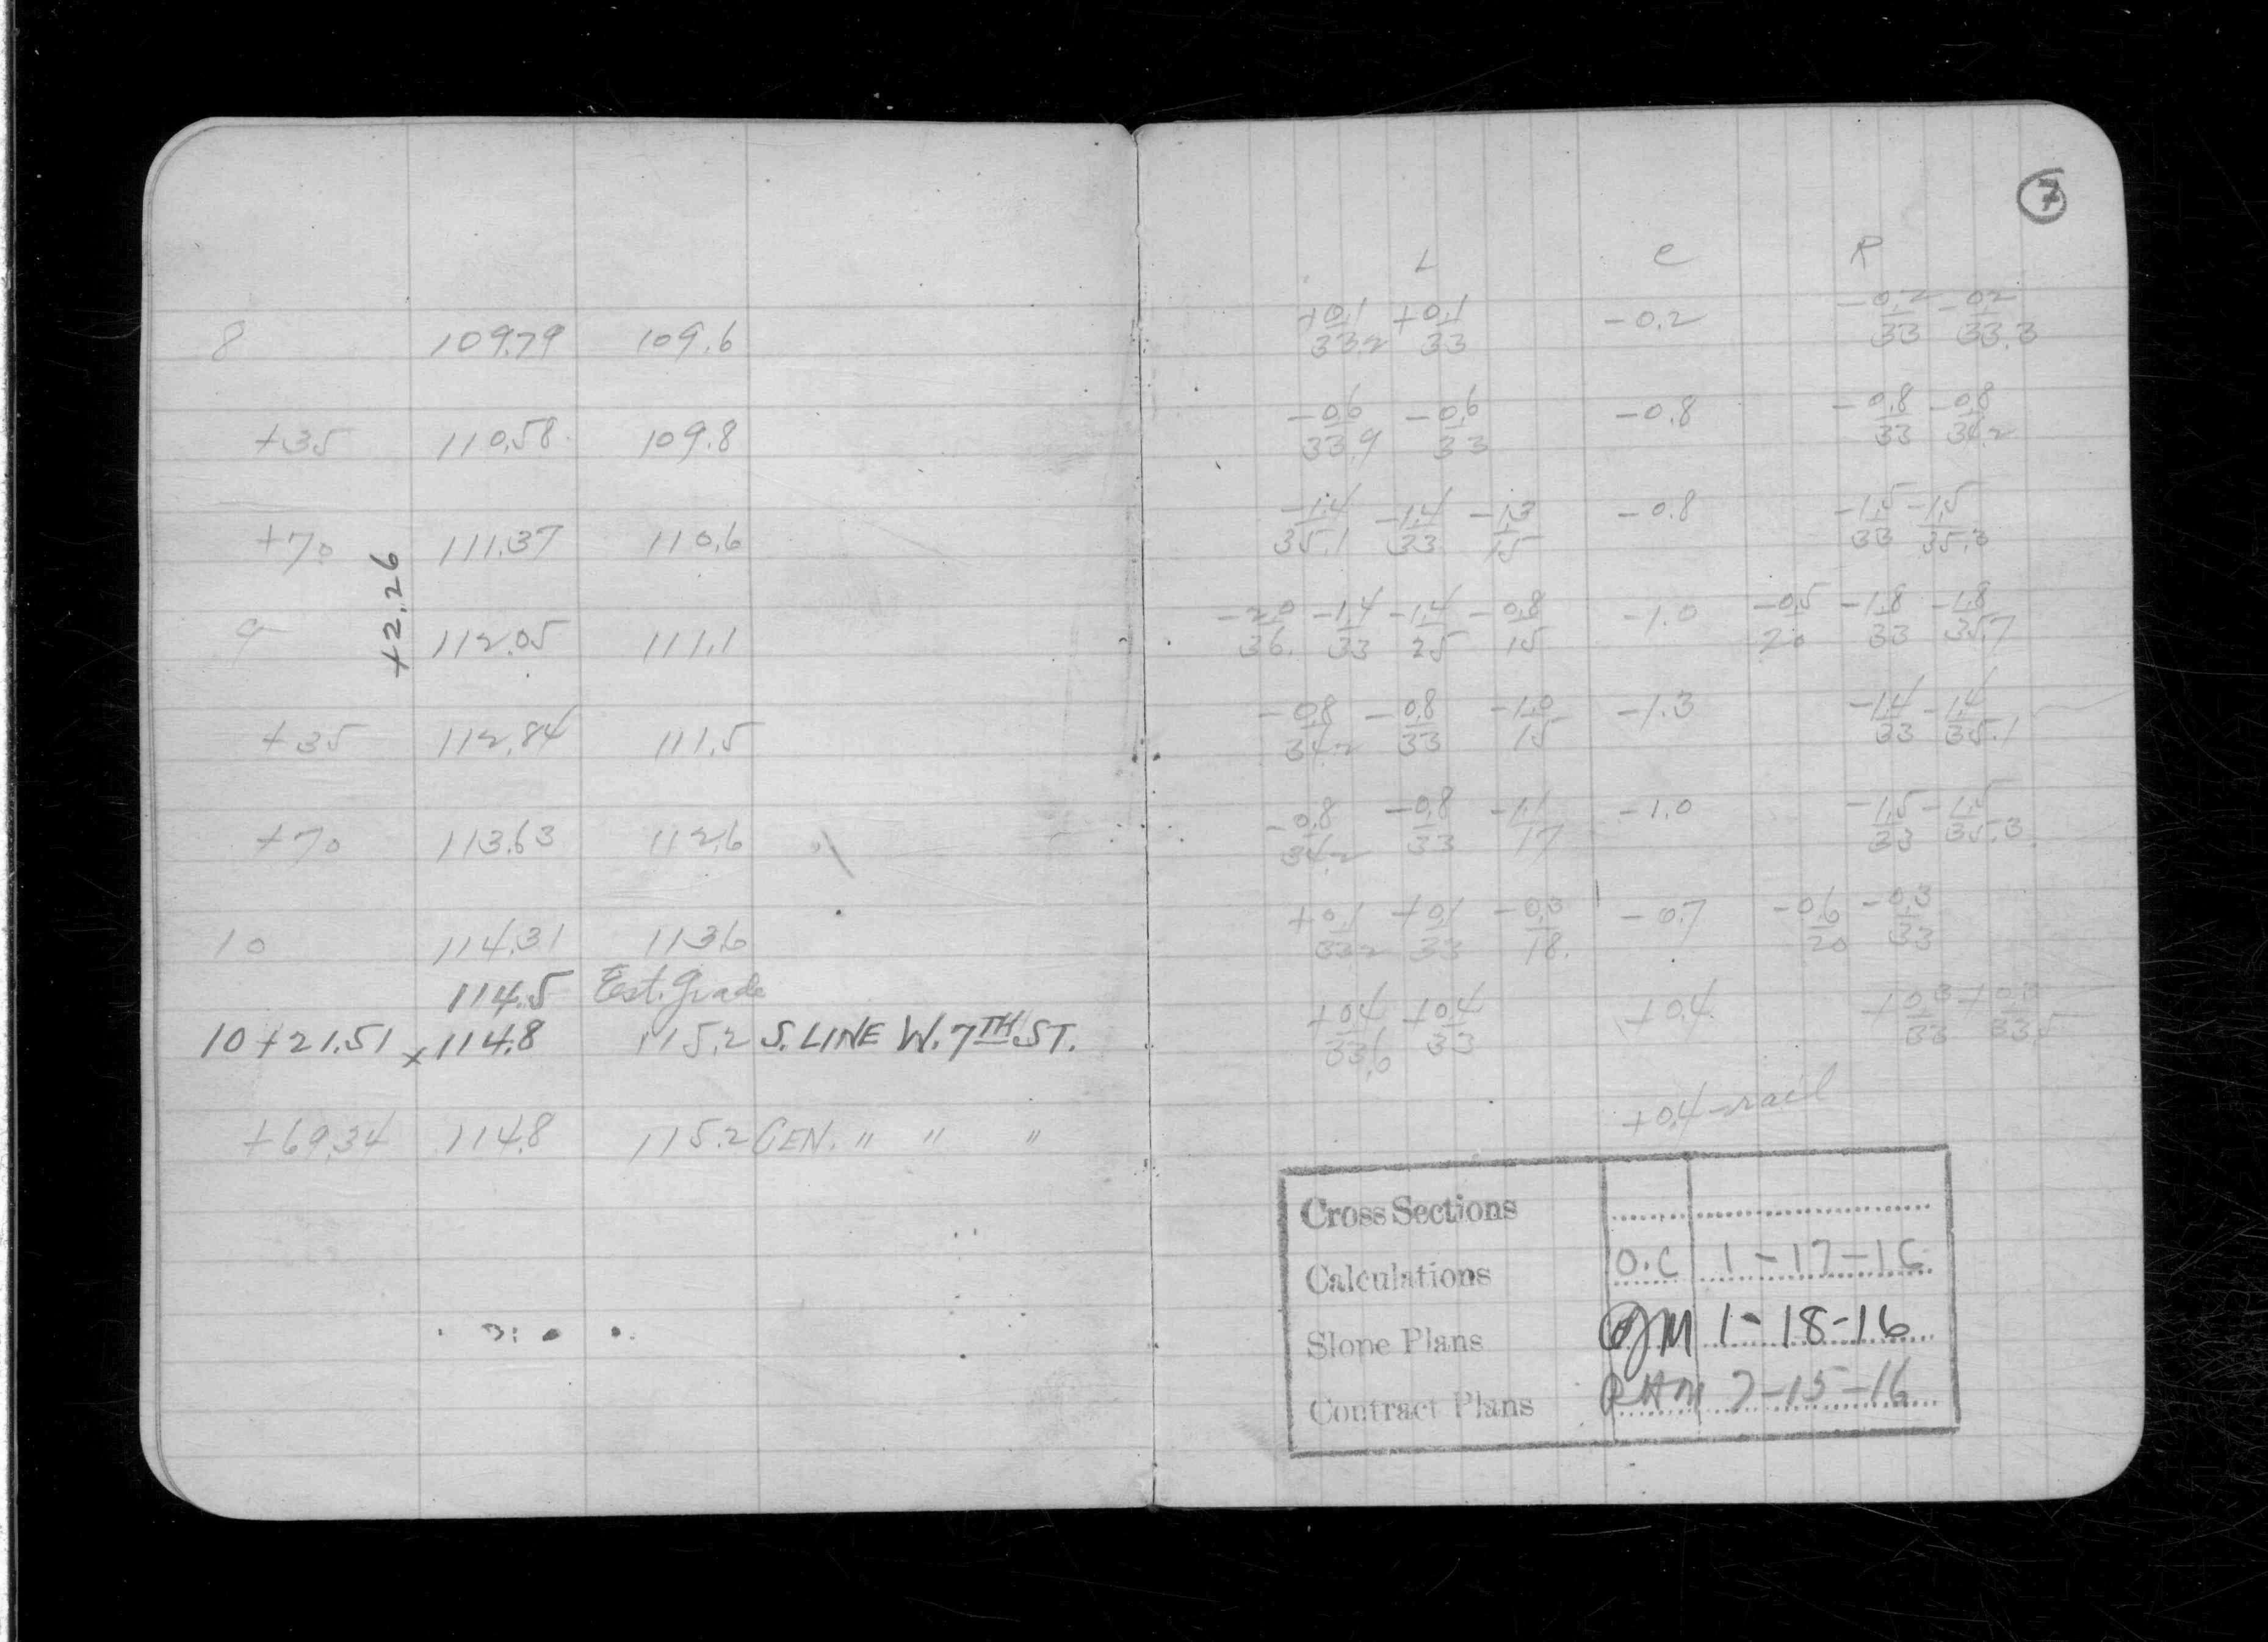 8 109.79 109.6
+35 110.58 109.8
+70 111.37 110.6
+2.26
9 112.05 111.1
+35 112.84 111.5
+70 113.63 112.6
10 114.31 113.6
114.5 Est. Grade
10+21.51 x114.8 115.2 S. LINE W. 7TH ST.
+69.34 114.8 115.2 CEN. " " "
7
L C R
+0.1/33.2 +0.1/33 -0.2 -0.2/33 -0.2/33.3
-0.6/33.9 -0.6/33 -0.8 -0.8/33 -0.8/34.2
-1.4/35.1 -1.4/33 -1.3/15 -0.8 -1.5/33 -1.5/35.3
-2.0/36. -1.4/33 -1.4/25 -0.8/15 -1.0 -0.5/20 -1.8/33 -1.8/35.7
-0.8/34.2 -0.8/33 -1.0/15 -1.3 -1.4/33 -1.4/35.1
-0.8/34.2 -0.8/33 -1.1/17 -1.0 -1.5/33 -1.5/35.3
+0.1/33.2 +0.1/33 -0.3/18. -0.7 -0.6/20 -0.3/33
+0.4/33.6 +0.4/33 +0.4 +0.3/33 +0.3/33.5
+0.4 rail
Cross Sections
Calculations O.C 1-17-16
Slope Plans OJM 1-18-16
Contract Plans RHM 7-15-16